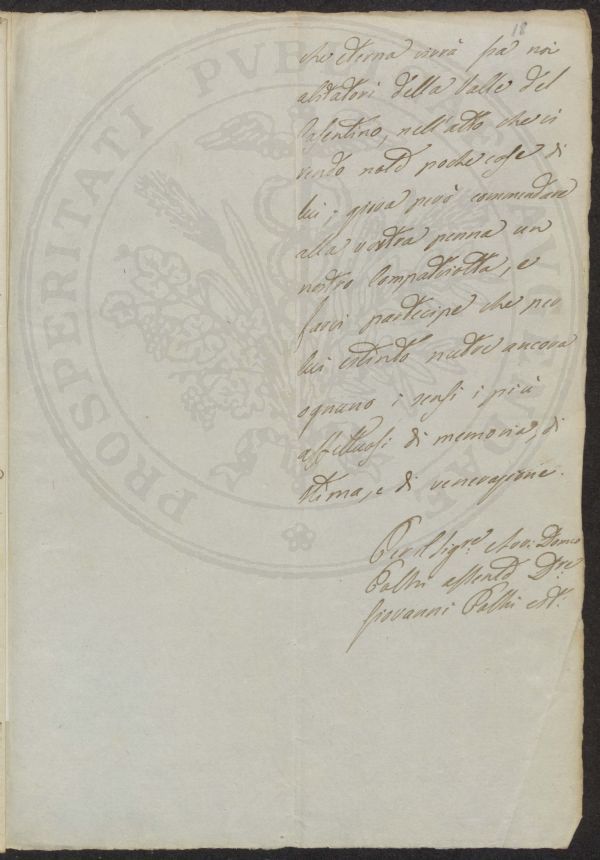 18
che eterna vivrà fra noi
abitatori della Valle del
Casentino, nell'atto che ci
rendo note poche cose di
lui; giova però commendare
alla vostra penna un
nostro Compatriotta, e
farvi partecipe che per
lui estinto nutre ancora
ognuno i sensi i più
affettuosi di memoria, di
stima, e di venerazione.
Per il Sigre. Avv. Domco
assente Dre.
Giovanni
PROSPERITATI PVBLICAE AVGENDAE